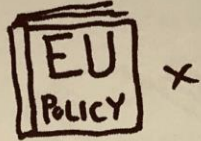 EU
POLICY
x